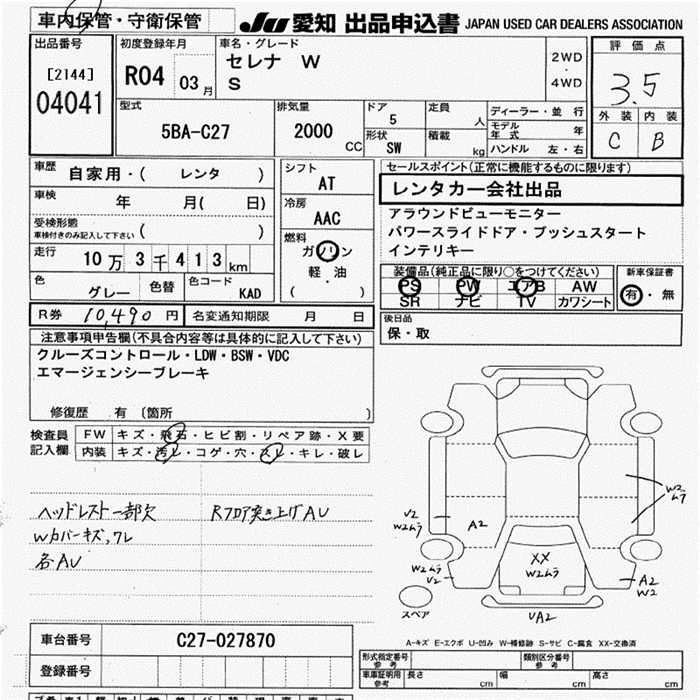 車内保管・守衛保管
JU 愛知 出品申込書 JAPAN USED CAR DEALERS ASSOCIATION
出品番号 初度登録年月 車名・グレード 評価点
[2144] R04 03月 セレナ W 2WD
04041 S 4WD 3.5
外装 内装
C B
型式 排気量 ドア 定員 ディーラー・並行
5BA-C27 2000 CC 5 人 モデル年式 年
形状 積載 ハンドル 左・右
SW kg
車歴 自家用・( レンタ ) シフト AT
車検 年 月( 日) 冷房 AAC
受検形態
車検付きのみ記入して下さい ( )
燃料 ガソリン
軽・油
( )
走行 10万3千413km
色 グレー 色替 色コード KAD
セールスポイント(正常に機能するものに限ります)
レンタカー会社出品
アラウンドビューモニター
パワースライドドア・プッシュスタート
インテリキー
装備品(純正品に限り○をつけてください) 新車保証書
PS PW エアB AW 有・無
SR ナビ TV カワシート
R券 10,490 円 名変通知期限 月 日
後日品
保・取
注意事項申告欄(不具合内容等は具体的に記入して下さい)
クルーズコントロール・LDW・BSW・VDC
エマージェンシーブレーキ
修復歴 有 〔箇所 〕
検査員記入欄 FW キズ・飛石・ヒビ割・リペア跡・X要
内装 キズ・汚レ・コゲ・穴・スレ・キレ・破レ
ヘッドレスト一部欠 Rフロア突き上げAU
Wカバーキズ,ワレ
各AU
V2
W2ムラ
A2
XX
W2ムラ
W2ムラ
W2ムラ
V2
A2
W2
スペア
UA2
A-キズ E-エクボ U-凹み W-補修跡 S-サビ C-腐食 XX-交換済
車台番号 C27-027870
登録番号
形式指定番号 参考 類別区分番号 参考
車庫証明用 参考 長さ cm 幅 cm 高さ cm